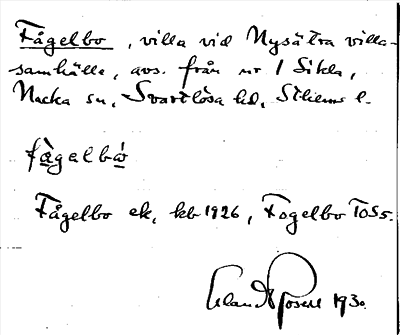 Fågelbo, villa vid Nysätra villa-
samhälle, avs. från nr 1 Sikla,
Nacka sn, Svartlösa hd, Sthlms l.
fågelbo
Fågelbo ek, kb 1926, Fogelbo TOSs.
Erland Rosell 1930